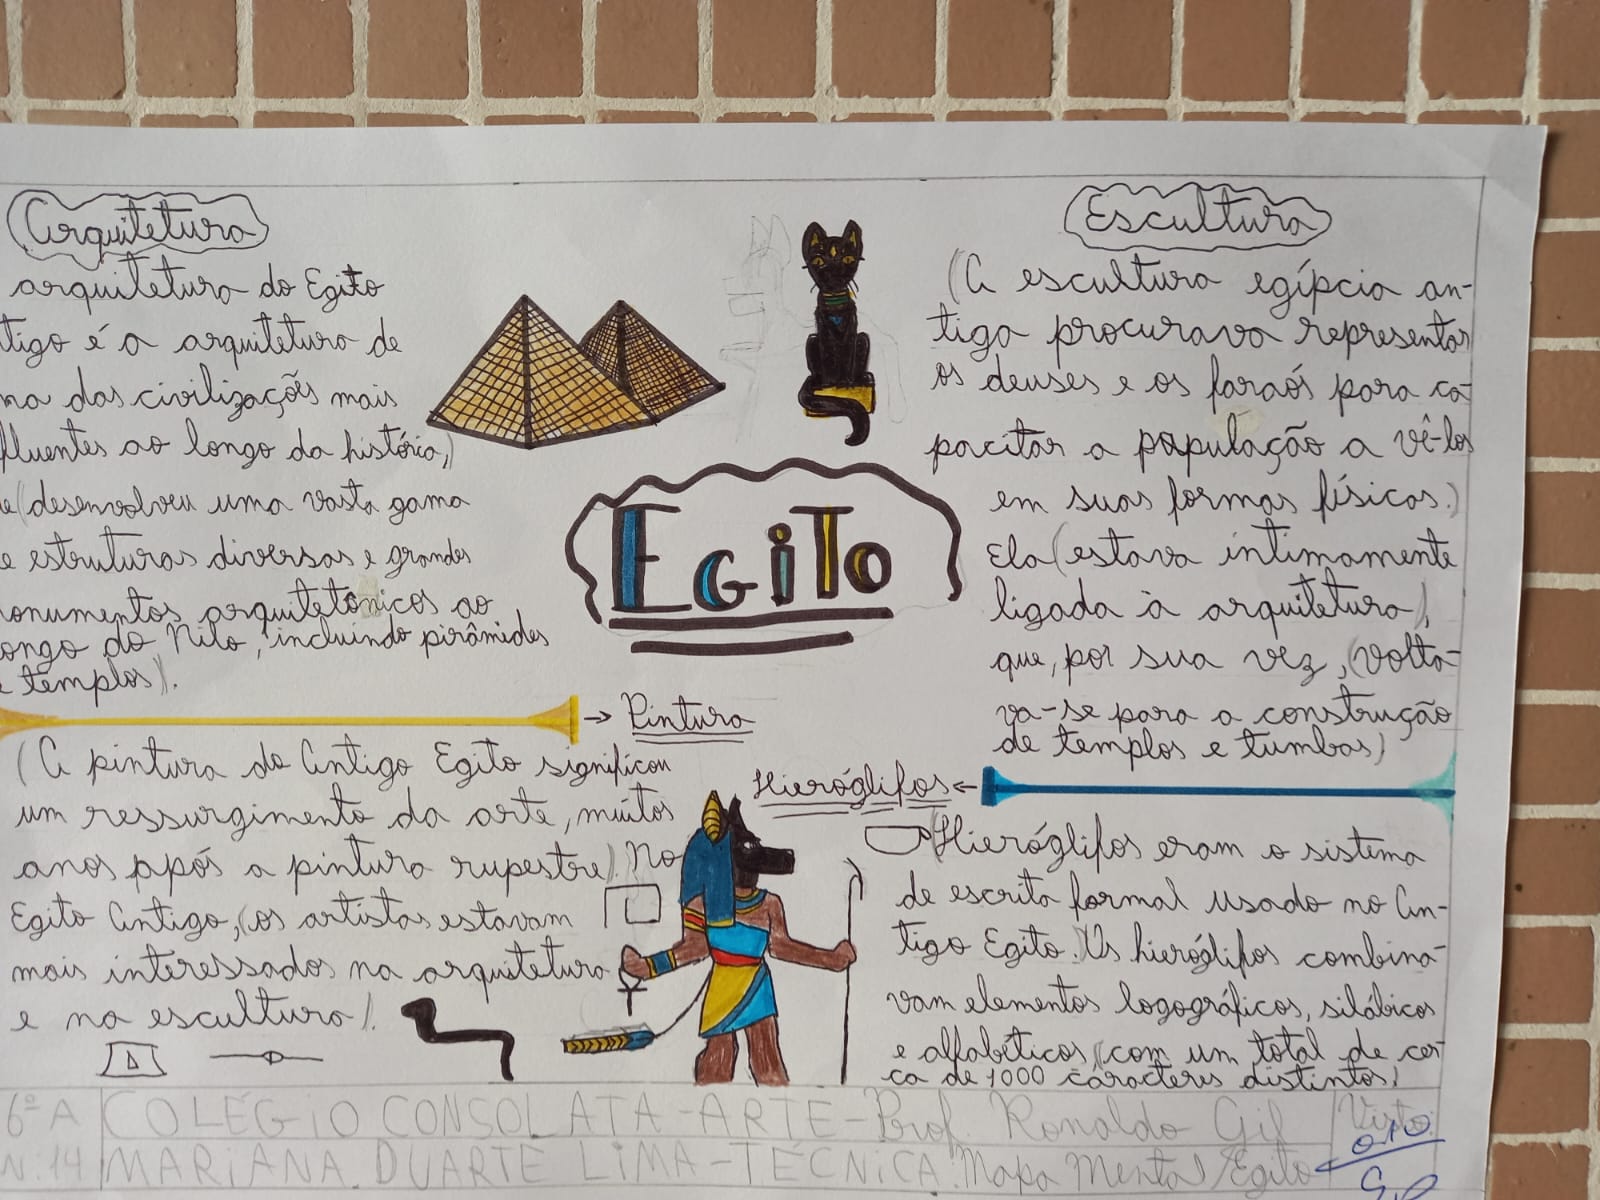 Arquitetura
arquitetura do Egito
tigo é a arquitetura de
ma das civilizações mais
fluentes ao longo da história,)
e (desenvolveu uma vasta gama
e estruturas diversas e grandes
onumentos arquitetônicos ao
ongo do Nilo, incluindo pirâmides
e templos).
→ Pintura
(A pintura do Antigo Egito significou
um ressurgimento da arte, muitos
anos após a pintura rupestre). No
Egito Antigo, (os artistas estavam
mais interessados na arquitetura
e na escultura).
EGiTo
Escultura
(A escultura egípcia an-
tiga procurava representar
os deuses e os faraós para ca-
pacitar a população a vê-los
em suas formas físicas.)
Ela (estava intimamente
ligada à arquitetura),
que, por sua vez, (volta-
va-se para a construção
de templos e tumbas)
Hieróglifos ←
(Hieróglifos eram o sistema
de escrita formal usado no An-
tigo Egito.) Os hieróglifos combina-
vam elementos logográficos, silábicos
e alfabéticos, (com um total de cer-
ca de 1000 caracteres distintos)
6º A COLÉGiO CONSOLATA-ARTE-Prof. Ronaldo Gil Visto
N: 14 MARiANA DUARTE LiMA-TÉCNiCA: Mapa Mental/Egito